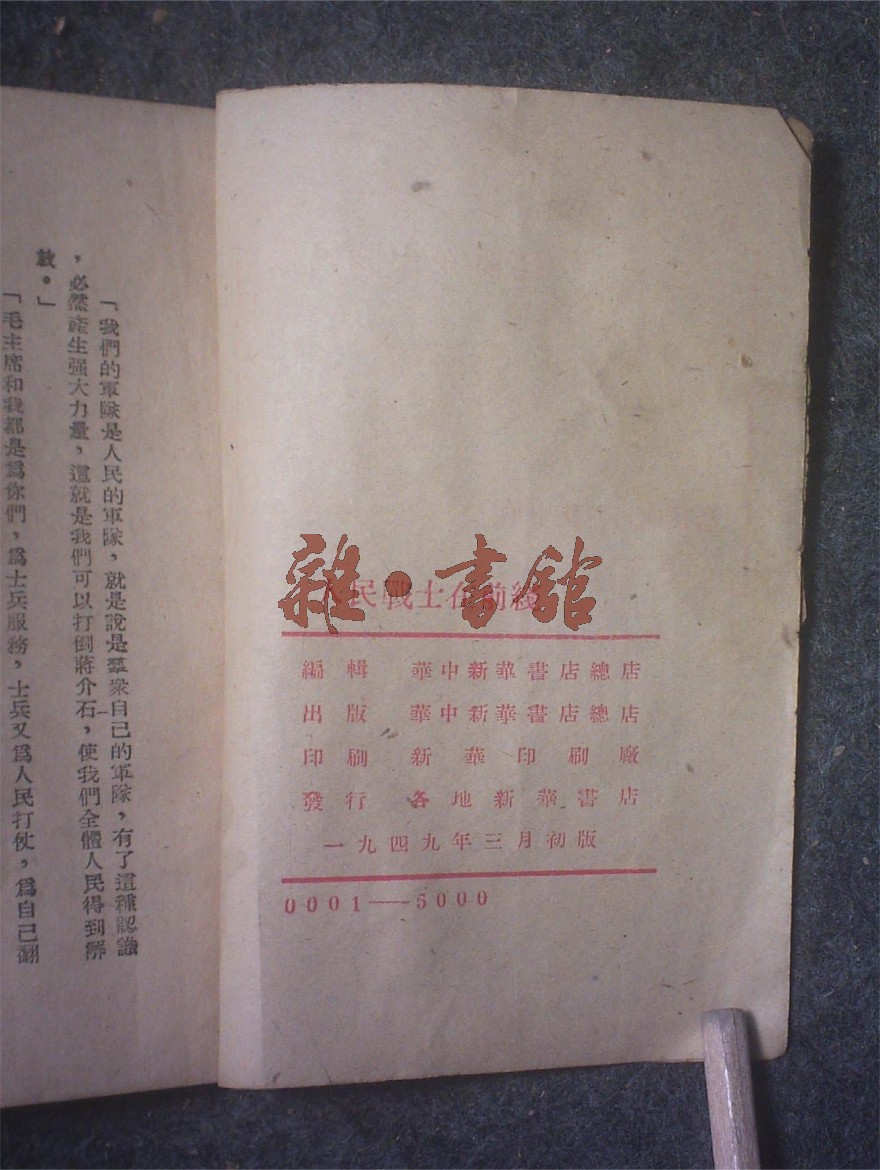 「我們的軍隊是人民的軍隊，就是說是羣衆自己的軍隊，有了這種認識
，必然產生强大力量，這就是我們可以打倒蔣介石，使我們全體人民得到解
放。」
「毛主席和我都是爲你們，爲士兵服務，士兵又爲人民打仗，爲自己翻
雜·書館
人民戰士在前綫
編輯 華中新華書店總店
出版 華中新華書店總店
印刷 新華印刷廠
發行 各地新華書店
一九四九年三月初版
0001——5000